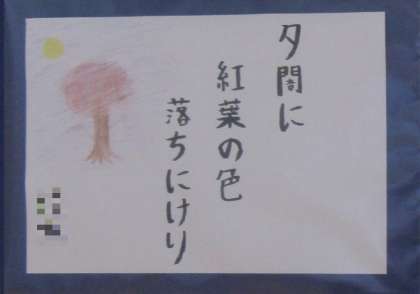 夕闇に
紅葉の色
落ちにけり